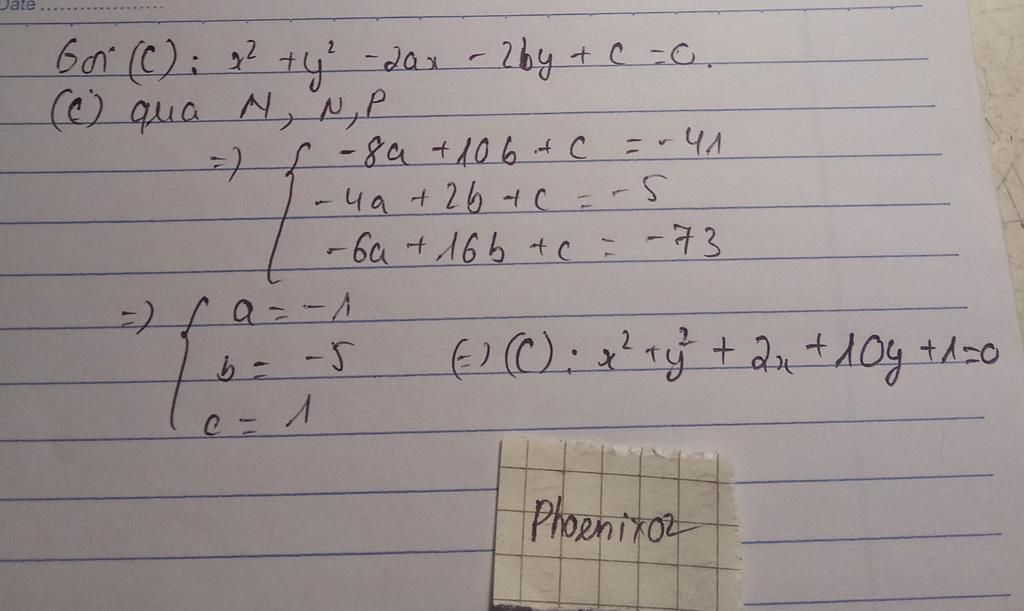 Date ....................
Gọi (C): x² + y² - 2ax - 2by + c = 0.
(C) qua M, N, P
=> { -8a + 10b + c = -41
-4a + 2b + c = -5
-6a + 16b + c = -73
=> { a = -1
b = -5 (=) (C): x² + y² + 2x + 10y + 1 = 0
c = 1
Phoenix02